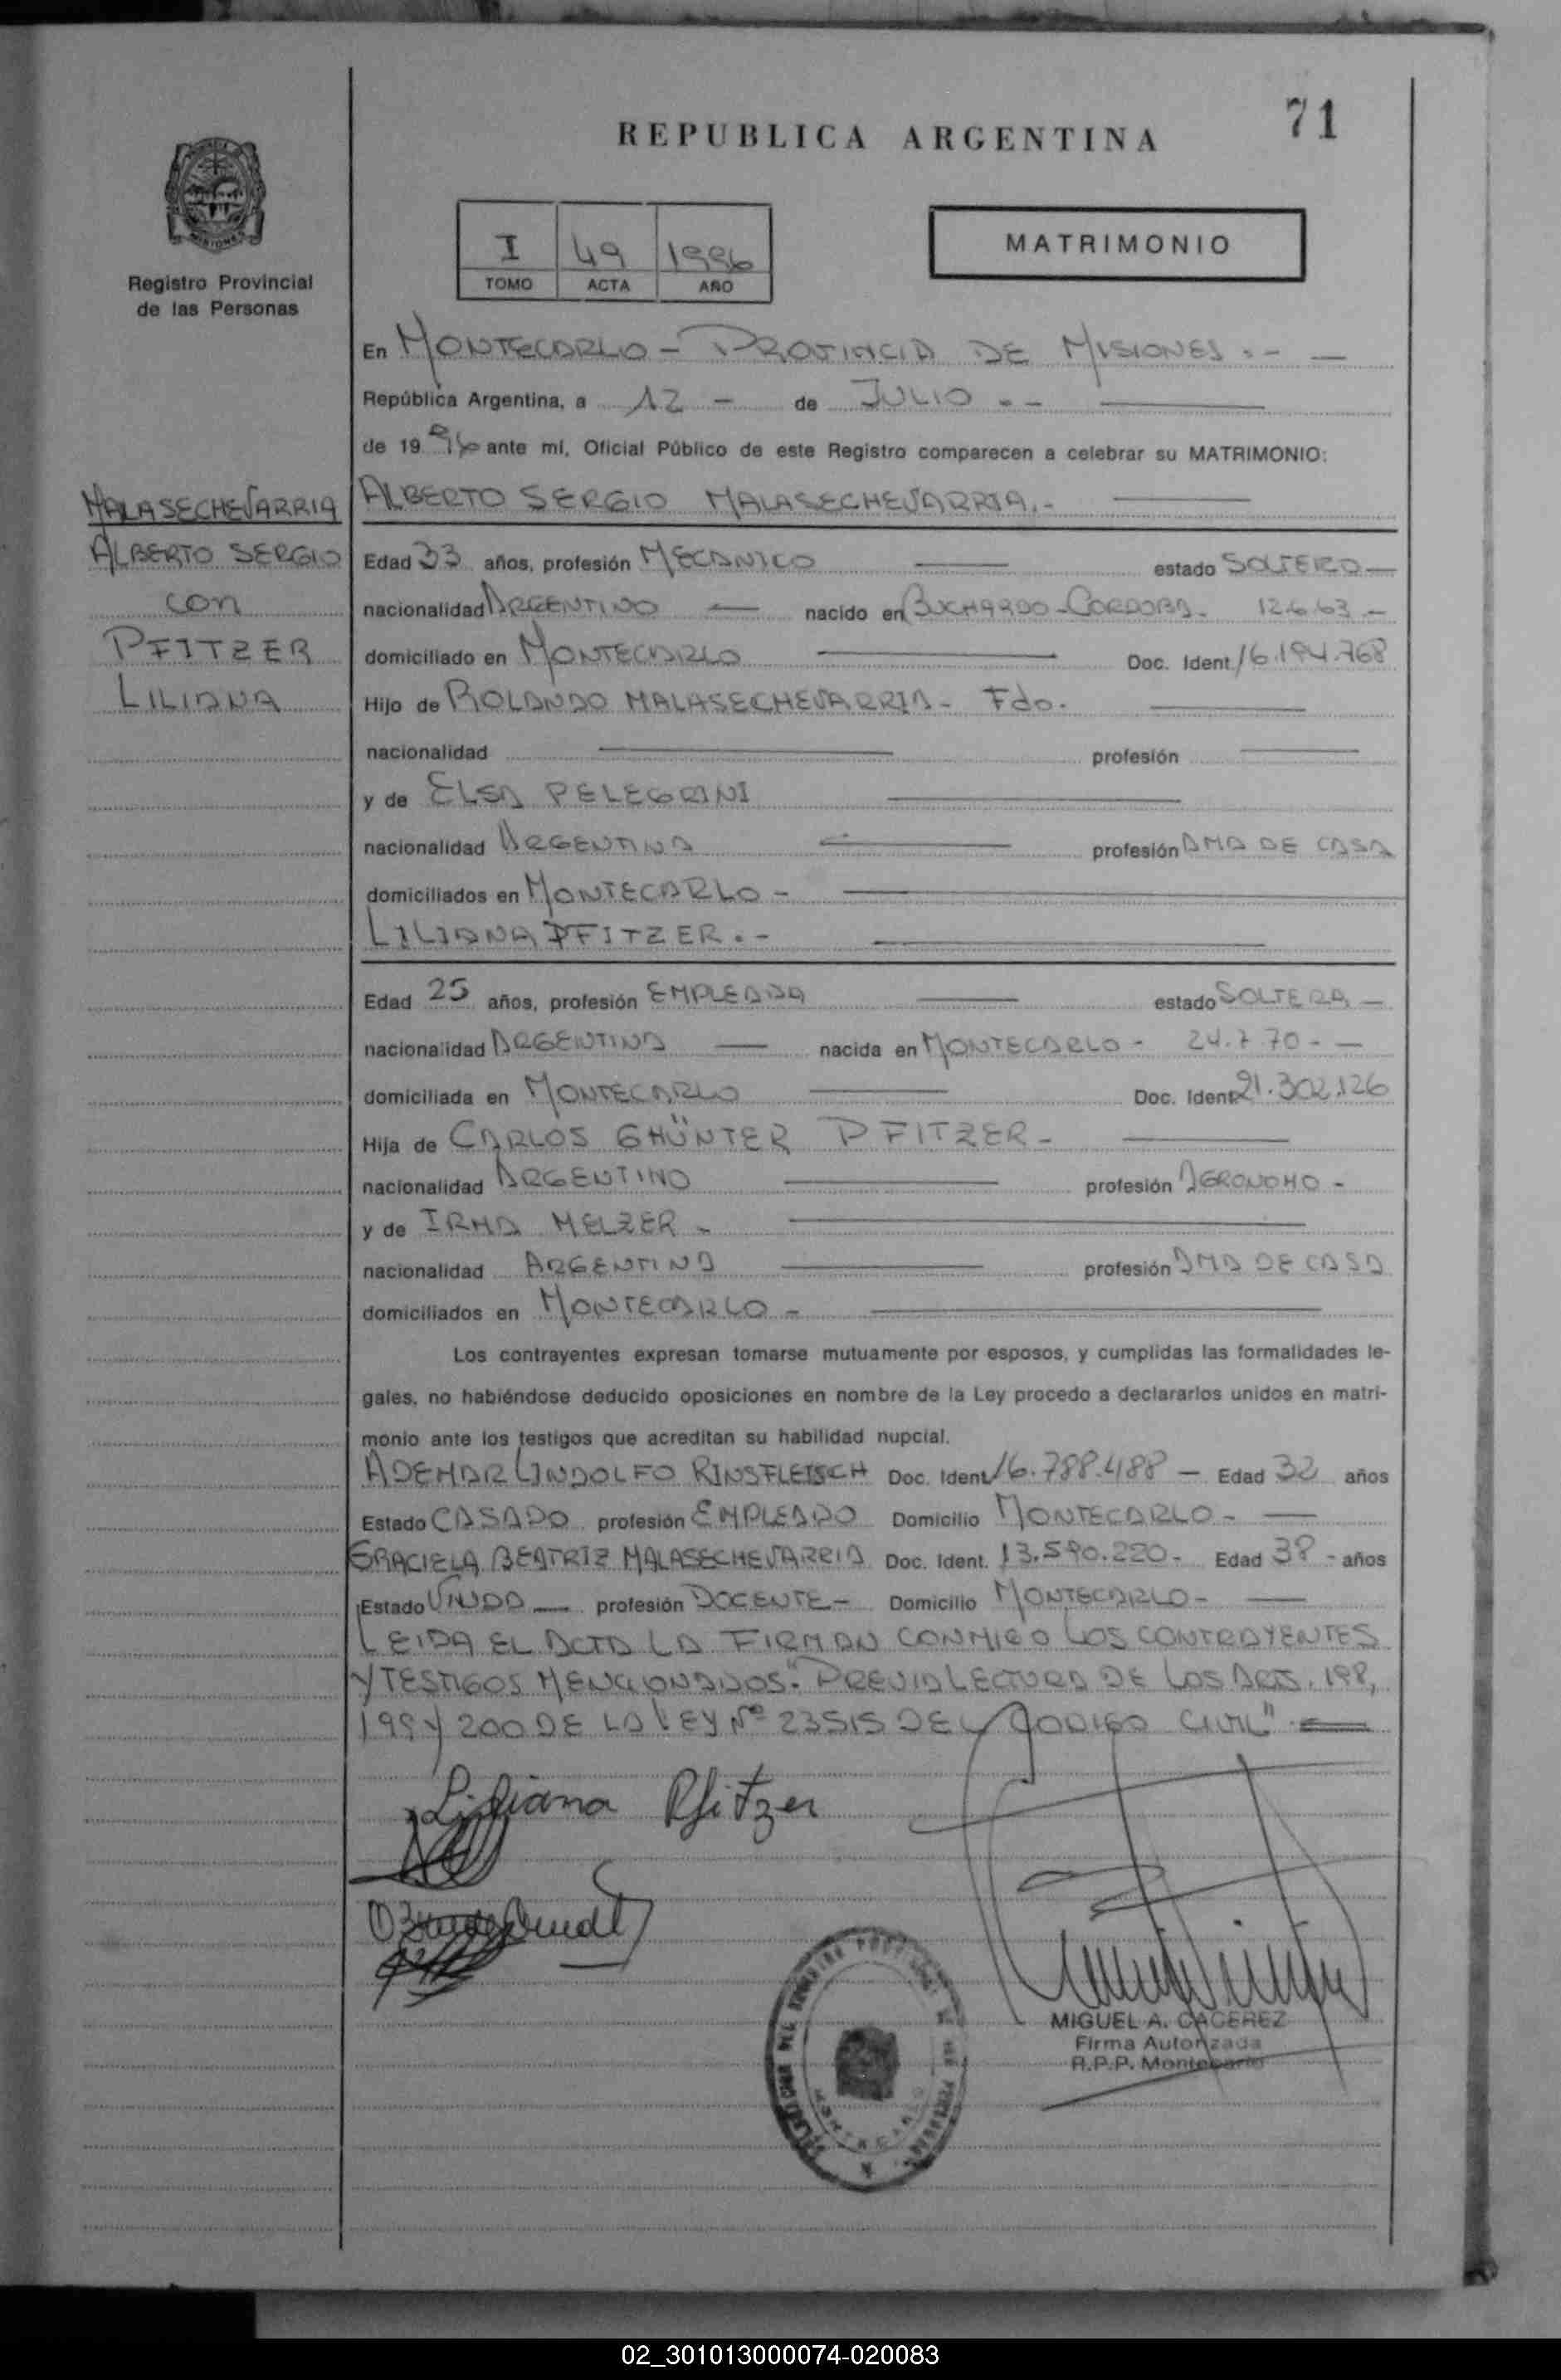 71
REPUBLICA ARGENTINA
Registro Provincial
de las Personas
I 49 1996
TOMO ACTA AÑO
MATRIMONIO
En MONTECARLO - PROVINCIA DE MISIONES . - —
República Argentina, a 12 - de JULIO . -
de 19 96 ante mí, Oficial Público de este Registro comparecen a celebrar su MATRIMONIO:
MALASECHEVARRIA
ALBERTO SERGIO
con
PFITZER
LILIANA
ALBERTO SERGIO MALASECHEVARRIA. -
Edad 33 años, profesión MECANICO estado SOLTERO —
nacionalidad ARGENTINO — nacido en BUCHARDO - CORDOBA - 12.6.63 -
domiciliado en MONTECARLO Doc. Ident 16.194.768
Hijo de ROLANDO MALASECHEVARRIA - Fdo.
nacionalidad profesión
y de ELSA PELEGRINI
nacionalidad ARGENTINA profesión AMA DE CASA
domiciliados en MONTECARLO -
LILIANA PFITZER . -
Edad 25 años, profesión EMPLEADA estado SOLTERA —
nacionalidad ARGENTINA — nacida en MONTECARLO - 24.7.70 - —
domiciliada en MONTECARLO Doc. Ident 21.302.126
Hija de CARLOS GHÜNTER PFITZER -
nacionalidad ARGENTINO profesión AGRONOMO -
y de IRMA MELZER -
nacionalidad ARGENTINA profesión AMA DE CASA
domiciliados en MONTECARLO -
Los contrayentes expresan tomarse mutuamente por esposos, y cumplidas las formalidades le-
gales, no habiéndose deducido oposiciones en nombre de la Ley procedo a declararlos unidos en matri-
monio ante los testigos que acreditan su habilidad nupcial.
ADEMAR LINDOLFO RINSFLEISCH Doc. Ident 16.788.488 — Edad 32 años
Estado CASADO profesión EMPLEADO Domicilio MONTECARLO - —
GRACIELA BEATRIZ MALASECHEVARRIA Doc. Ident. 13.590.220 - Edad 38 - años
Estado VIUDA — profesión DOCENTE - Domicilio MONTECARLO - —
LEIDA EL ACTA LA FIRMAN CONMIGO LOS CONTRAYENTES
Y TESTIGOS MENCIONADOS. "PREVIA LECTURA DE LOS ARTS. 198,
199 Y 200 DE LA LEY Nº 23515 DEL CODIGO CIVIL" .
Liliana Pfitzer
MIGUEL A. CACEREZ
Firma Autorizada
R.P.P. Montecarlo
MONTECARLO
02_301013000074-020083